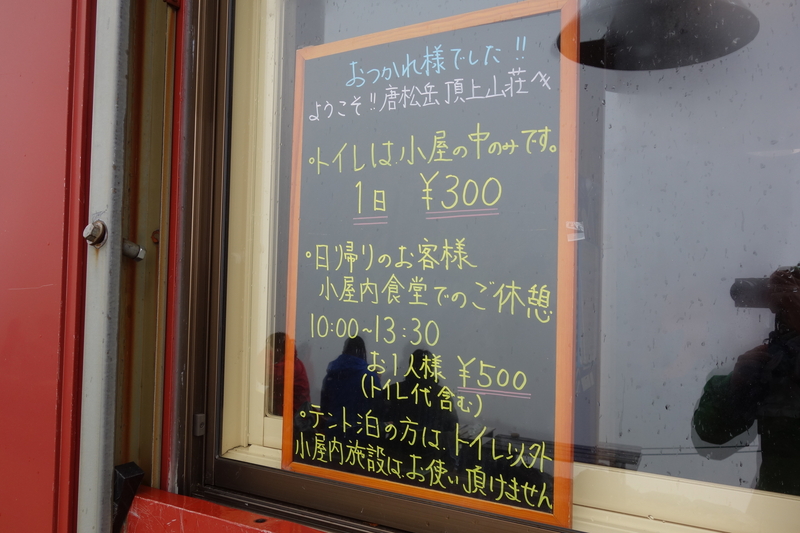 おつかれ様でした!!
ようこそ!!唐松岳頂上山荘へ
・トイレは小屋の中のみです。
1日 ¥300
・日帰りのお客様
小屋内食堂でのご休憩
10:00~13:30
お1人様 ¥500
(トイレ代含む)
・テント泊の方は、トイレ以外
小屋内施設は、お使い頂けません